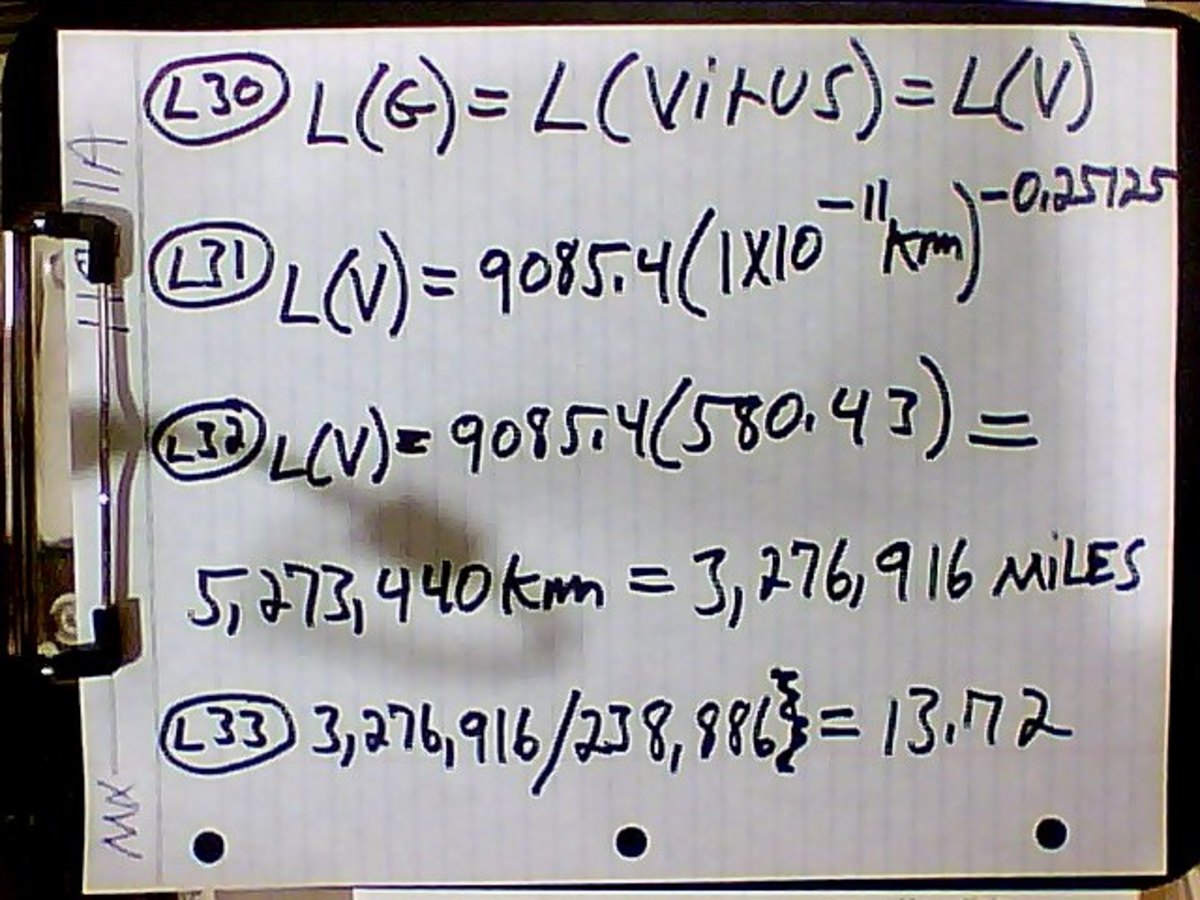 L30 L(G) = L(Virus) = L(V)
L31 L(V) = 9085.4(1X10^-11 km)^-0.25125
L32 L(V) = 9085.4(580.43) =
5,273,440 km = 3,276,916 MiLES
L33 3,276,916/238,886} = 13.72